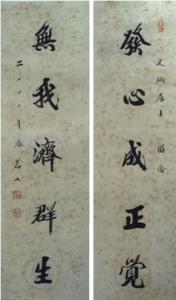 發心成正覺
文炳居士 留念
無我濟群生
二〇〇〇年春